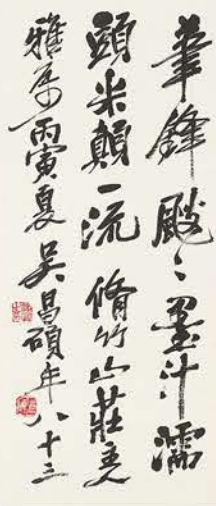 筆鋒颼〻墨汁濡
頭米顛一流脩竹山莊主
雅屬丙寅夏吳昌碩年八十三